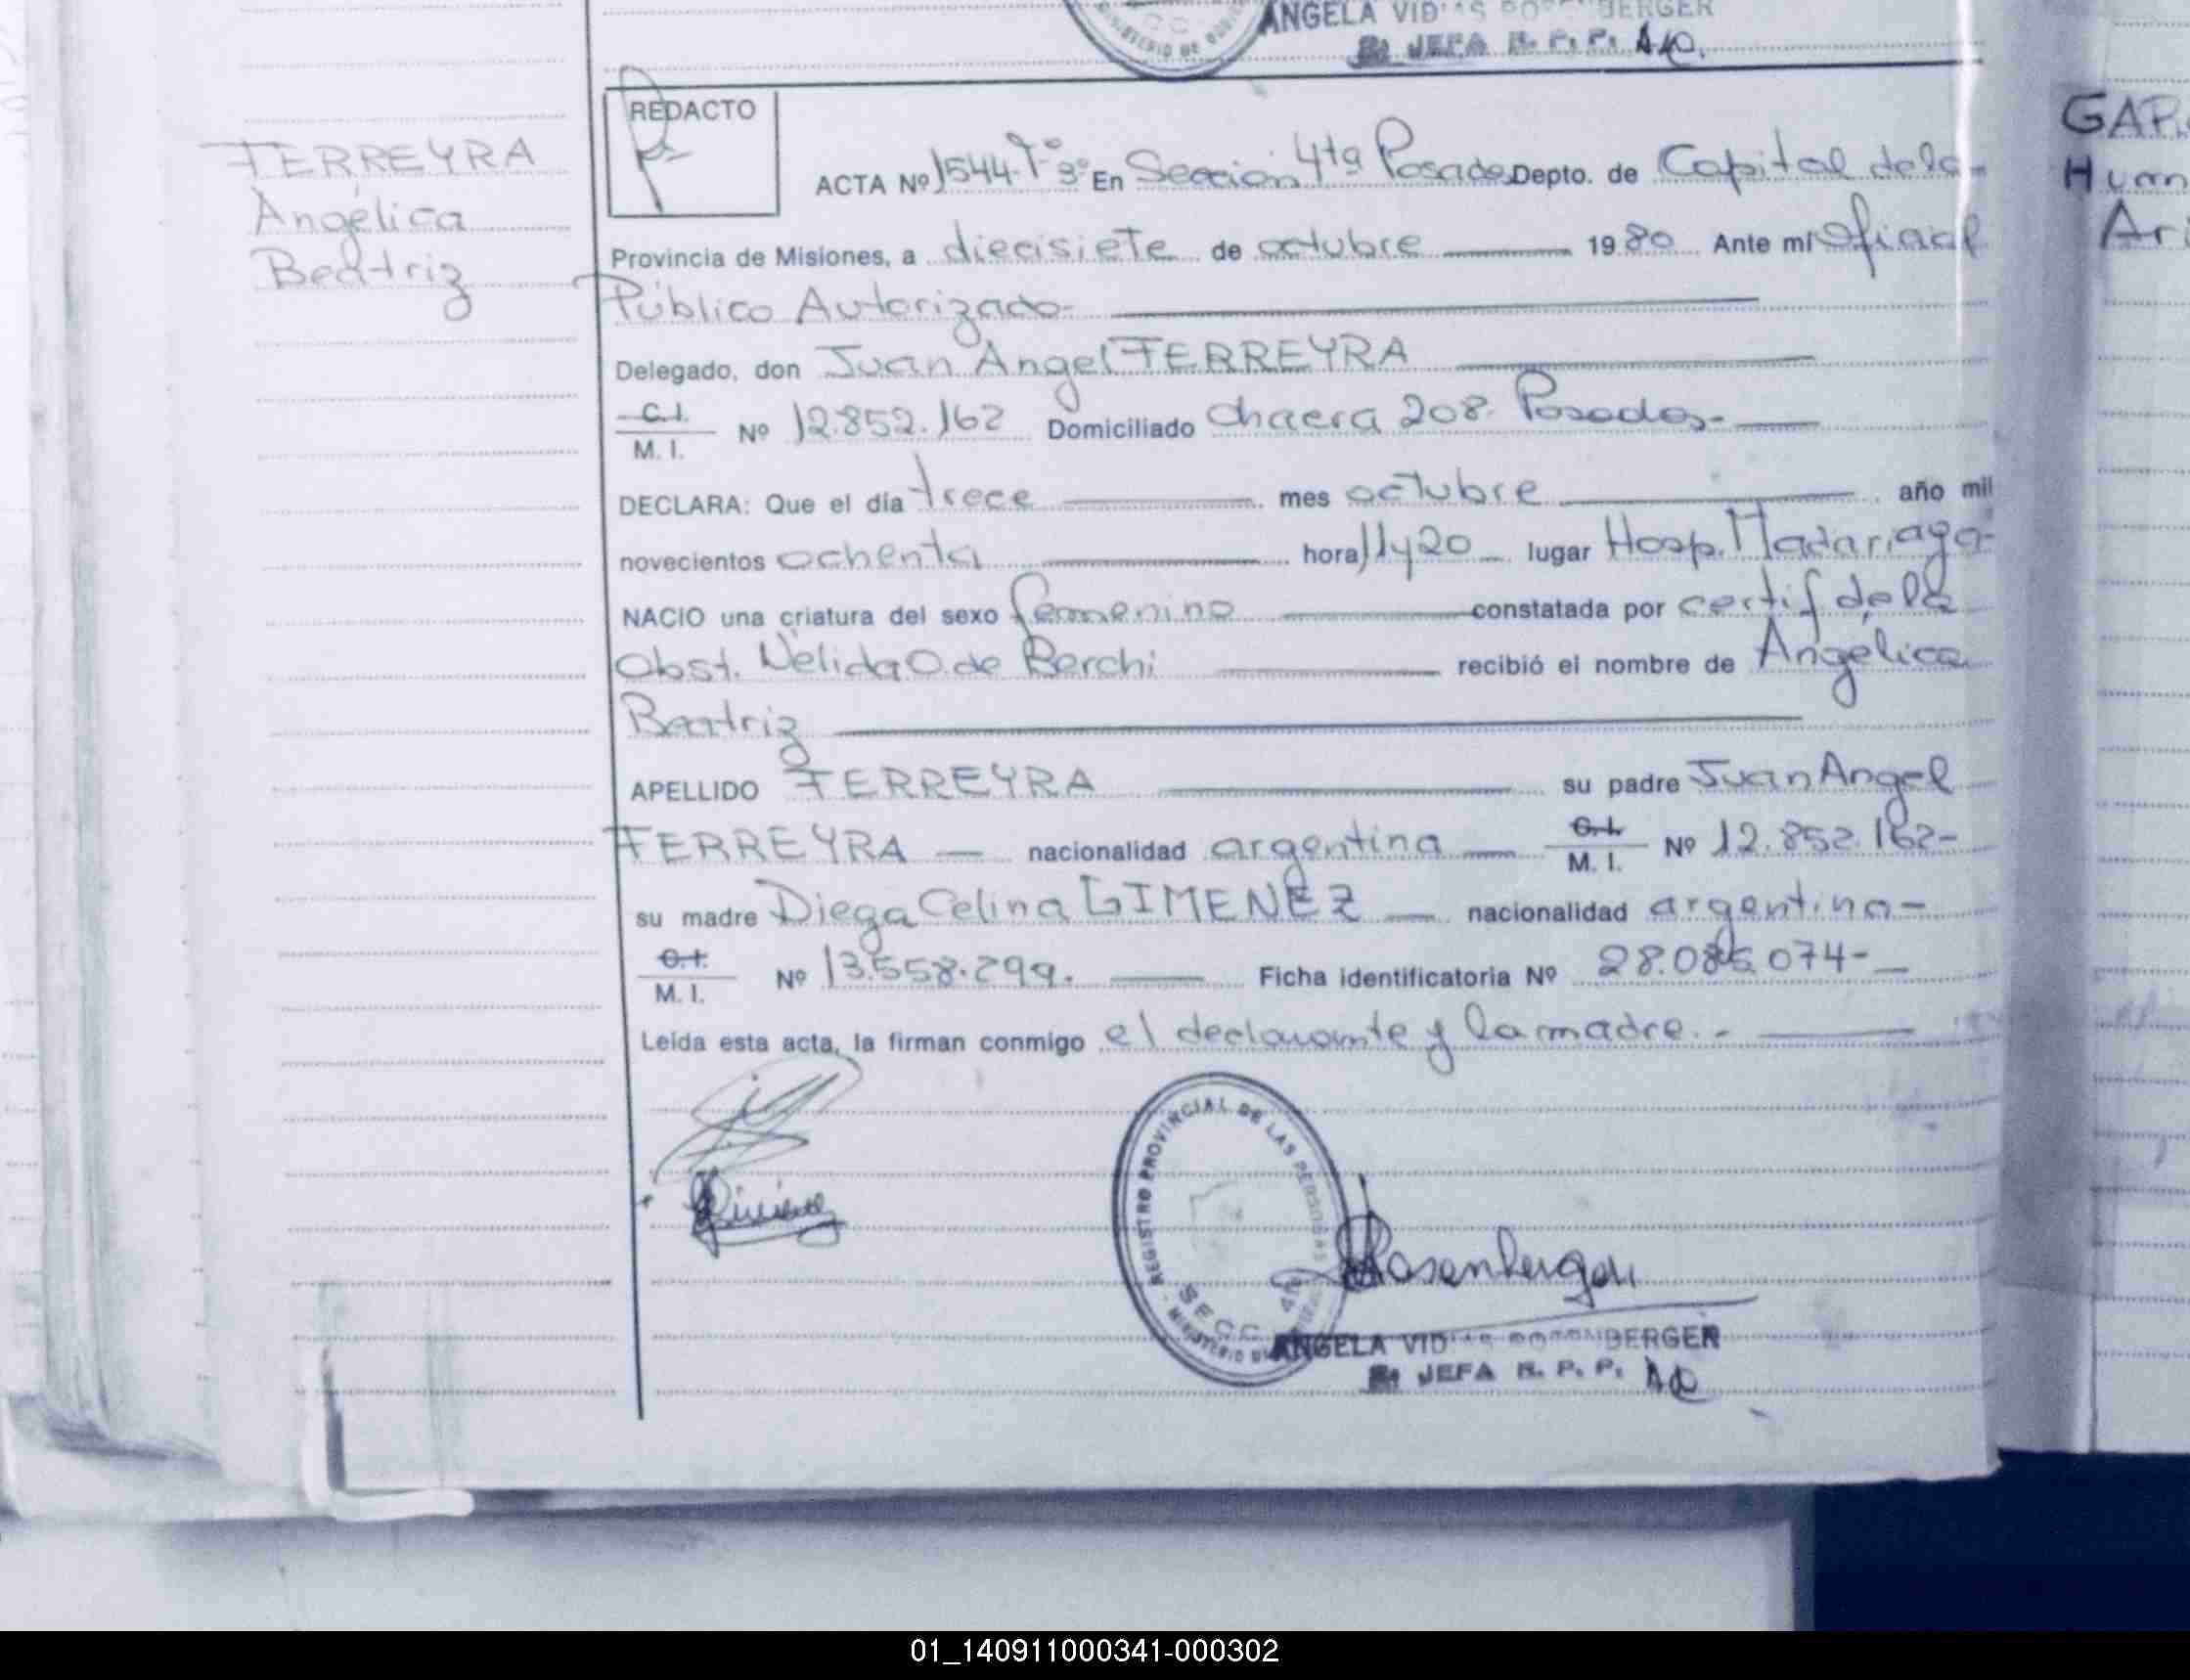 ANGELA VID
JEFA R. P. P.
REDACTO
FERREYRA
Angélica
Beatriz
GAR
Hum
Ari
ACTA Nº 1544 Tº 3º En Sección 4ta Posadas Depto. de Capital de la
Provincia de Misiones, a diecisiete de octubre 1980 Ante mí Oficial
Público Autorizado-
Delegado, don Juan Angel FERREYRA
C. I.
M. I.
Nº 12.852.162 Domiciliado Chacra 208. Posadas-
DECLARA: Que el día trece mes octubre año mil
novecientos ochenta hora 11y20 lugar Hosp. Madariaga-
NACIO una criatura del sexo femenino constatada por certif de la
Obst. Nélida O. de Berchi recibió el nombre de Angélica
Beatriz
APELLIDO FERREYRA su padre Juan Angel
FERREYRA nacionalidad argentina C. I. M. I. Nº 12.852.162-
su madre Diega Celina GIMENEZ nacionalidad argentina-
C. I.
M. I.
Nº 13.558.299. Ficha identificatoria Nº 28.085.074-
Leída esta acta, la firman conmigo el declarante y la madre.-
REGISTRO PROVINCIAL DE LAS PERSONAS
SECC. 4ta
MINISTERIO DE
Rosenberger
ANGELA VID BERGER
JEFA R. P. P.
01_140911000341-000302